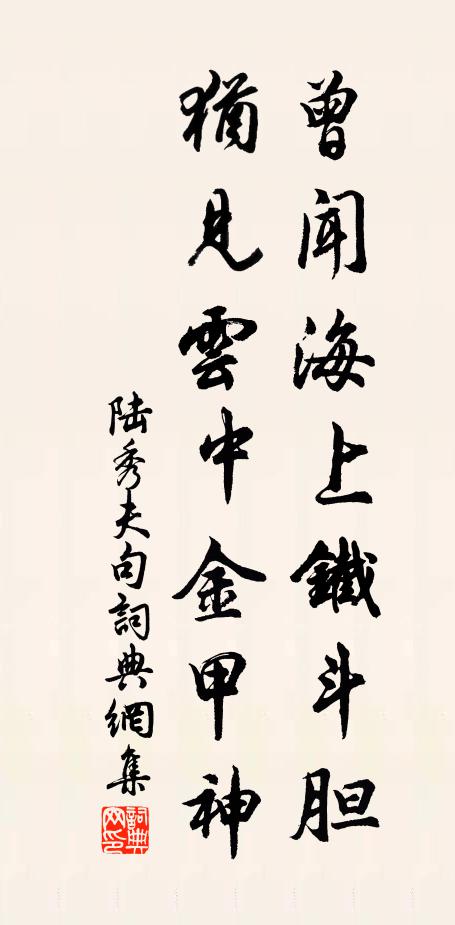 曾聞海上鐵斗胆
猶見雲中金甲神
陆秀夫句詞典網集
詞典网印